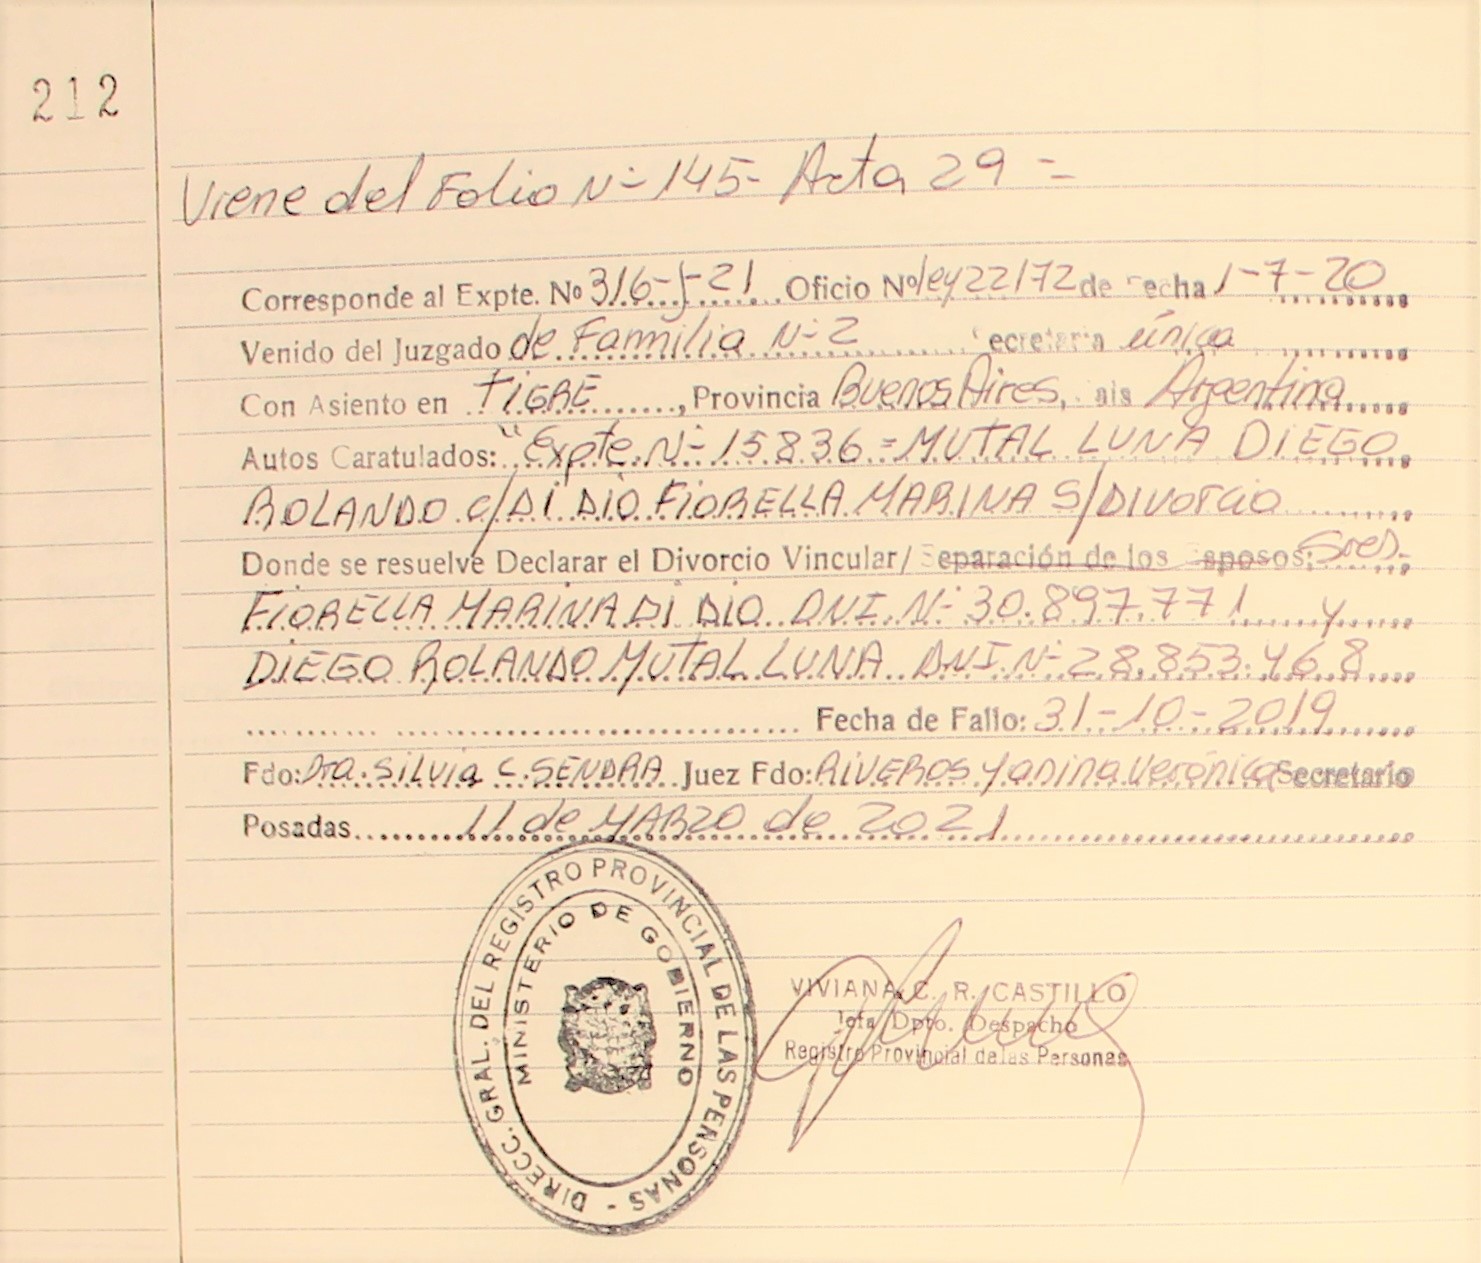 212
Viene del Folio Nº 145- Acta 29 =
Corresponde al Expte. Nº 316-J-21 Oficio Nº ley 22172 de Fecha 1-7-20
Venido del Juzgado de Familia Nº 2 Secretaria única
Con Asiento en TIGRE, Provincia Buenos Aires, ais Argentina
Autos Caratulados: "Expte. Nº 15.836 = MUTAL LUNA DIEGO
ROLANDO C/DI DIO FIORELLA MARINA S/Divorcio
Donde se resuelve Declarar el Divorcio Vincular/ Separación de los Esposos: Sres.
FIORELLA MARINA DI DIO DNI. Nº 30.897.771 y
DIEGO ROLANDO MUTAL LUNA DNI. Nº 28.853.468
Fecha de Fallo: 31-10-2019
Fdo: Dra. SILVIA C. SENDRA Juez Fdo: RIVEROS Yanina Verónica Secretario
Posadas 11 de MARZO de 2021
DIRECC. GRAL. DEL REGISTRO PROVINCIAL DE LAS PENSONAS -
MINISTERIO DE GOBIERNO
VIVIANA C. R. CASTILLO
Jefa Dpto. Despacho
Registro Provincial de las Personas